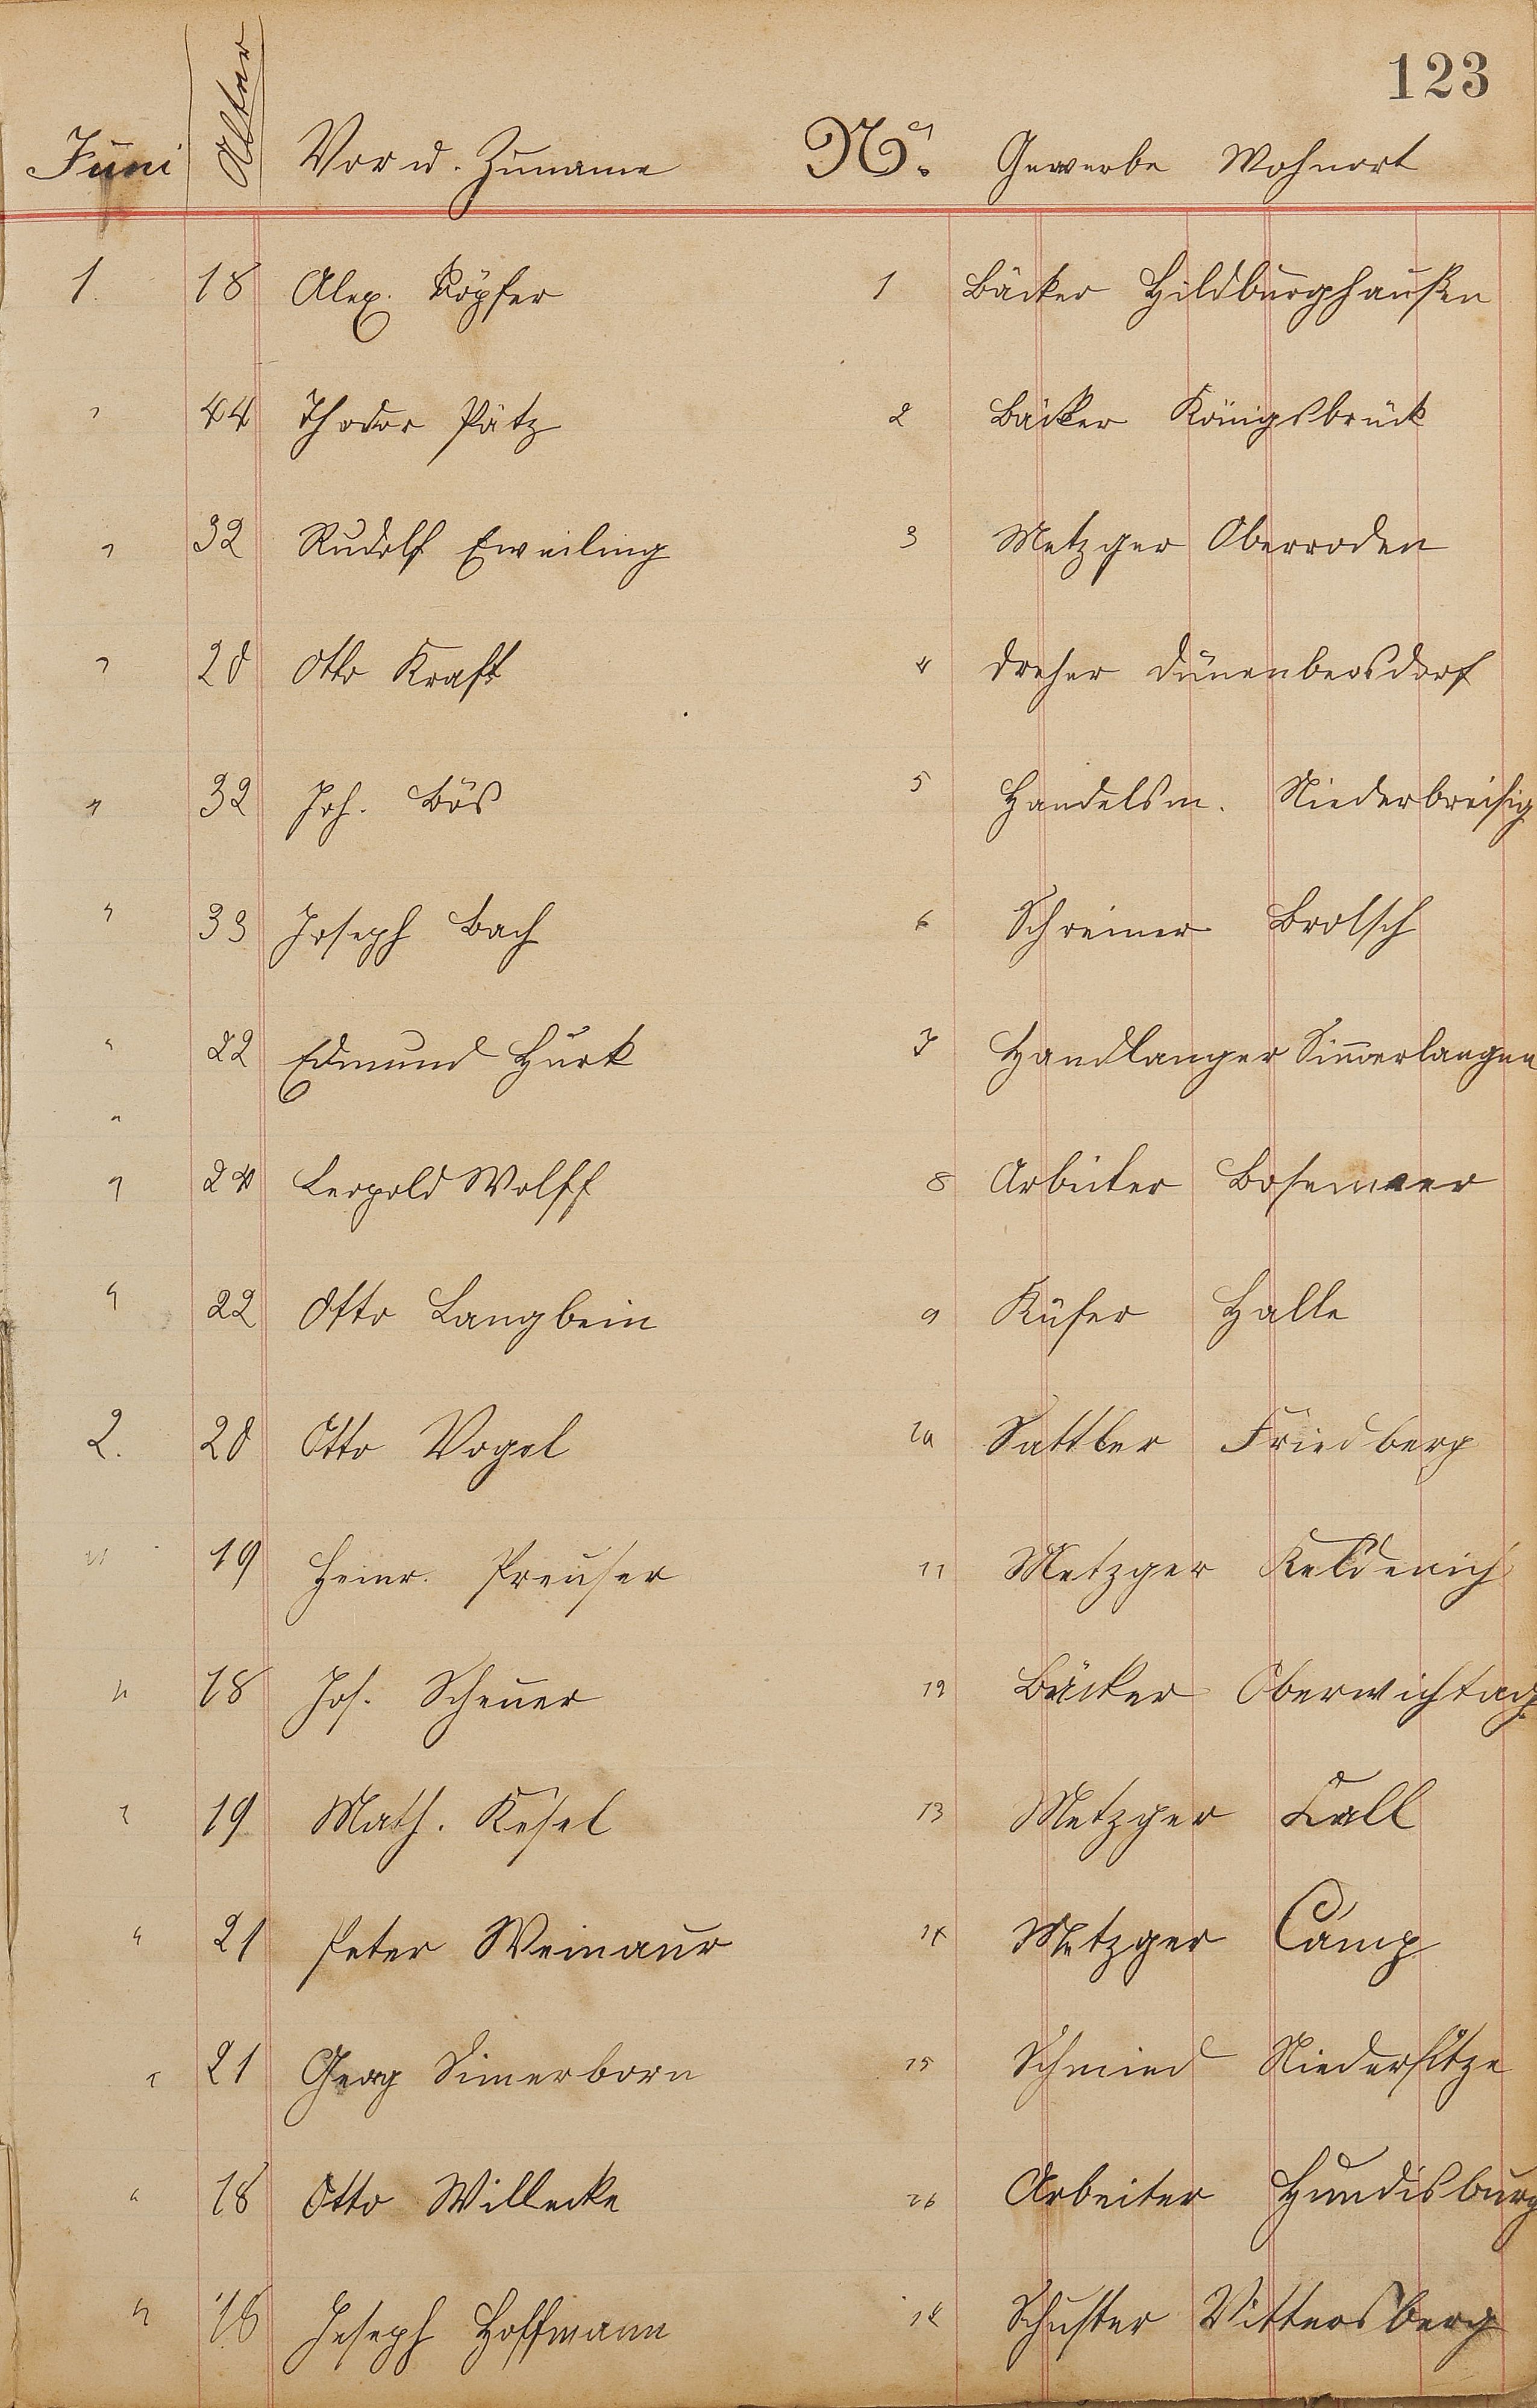 123
Juni Alter Vor u. Zuname No. Gewerbe Wohnort
1. 18 Alex. Köpfer 1 Bäcker Hildburghaußen
" 44 Thodor Pätz 2 Bäcker Königsbrück
" 32 Rudolf Eweiling 3 Metzger Oberroden
" 20 Otto Kraft 4 Dreher
" 32 Joh. Bös 5 Handelsm. Niederbreisig
" 33 Joseph Bach 6 Schreiner Brotsch
" 22 Edmund Hürk 7 Handlanger
"
" 24 Leopold Wolff 8 Arbeiter
" 22 Otto Langbein 9 Küfer Halle
2. 20 Otto Vogel 10 Sattler Friedberg
" 19 Heinr. Preuser 11 Metzger Keldenich
" 18 Jos. Scheuer 12 Bäcker Oberwichtach
" 19 Math. Kesel 13 Metzger Call
" 21 Peter Weinaur 14 Metzger Camp
" 21 Georg Simerborn 15 Schmied
" 18 Otto Willecke 16 Arbeiter Hundisburg
" 18 Joseph Hoffmann Schuster Vittersberg